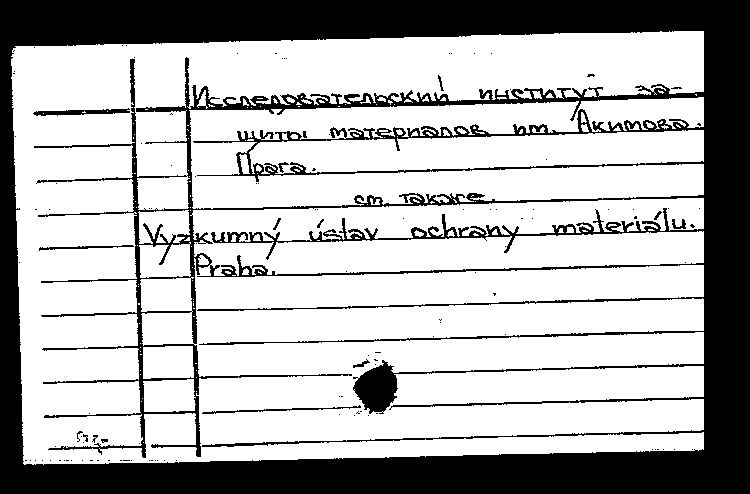 Исследовательский институт за-
щиты материалов им. Акимова.
Прага.
см. также
Vyzkumný ústav ochrany materiálu.
Praha.